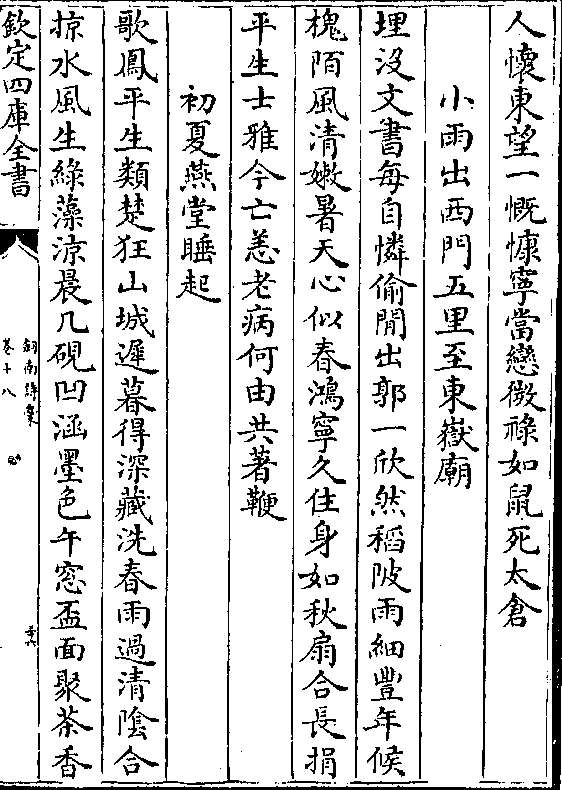 人懷東望一慨慷寧當戀微祿如鼠死太倉
小雨出西門五里至東嶽廟
埋沒文書每自憐偷閒出郭一欣然稻陂雨細豐年候
槐陌風清嫩暑天心似春鴻寧久住身如秋扇合長捐
平生士雅今亡恙老病何由共著鞭
初夏燕堂睡起
歌鳳平生類楚狂山城遲暮得深藏洗春雨過清陰合
掠水風生綠藻涼晨几硯凹涵墨色午窓盃面聚茶香
欽定四庫全書
劍南詩稾
卷十八